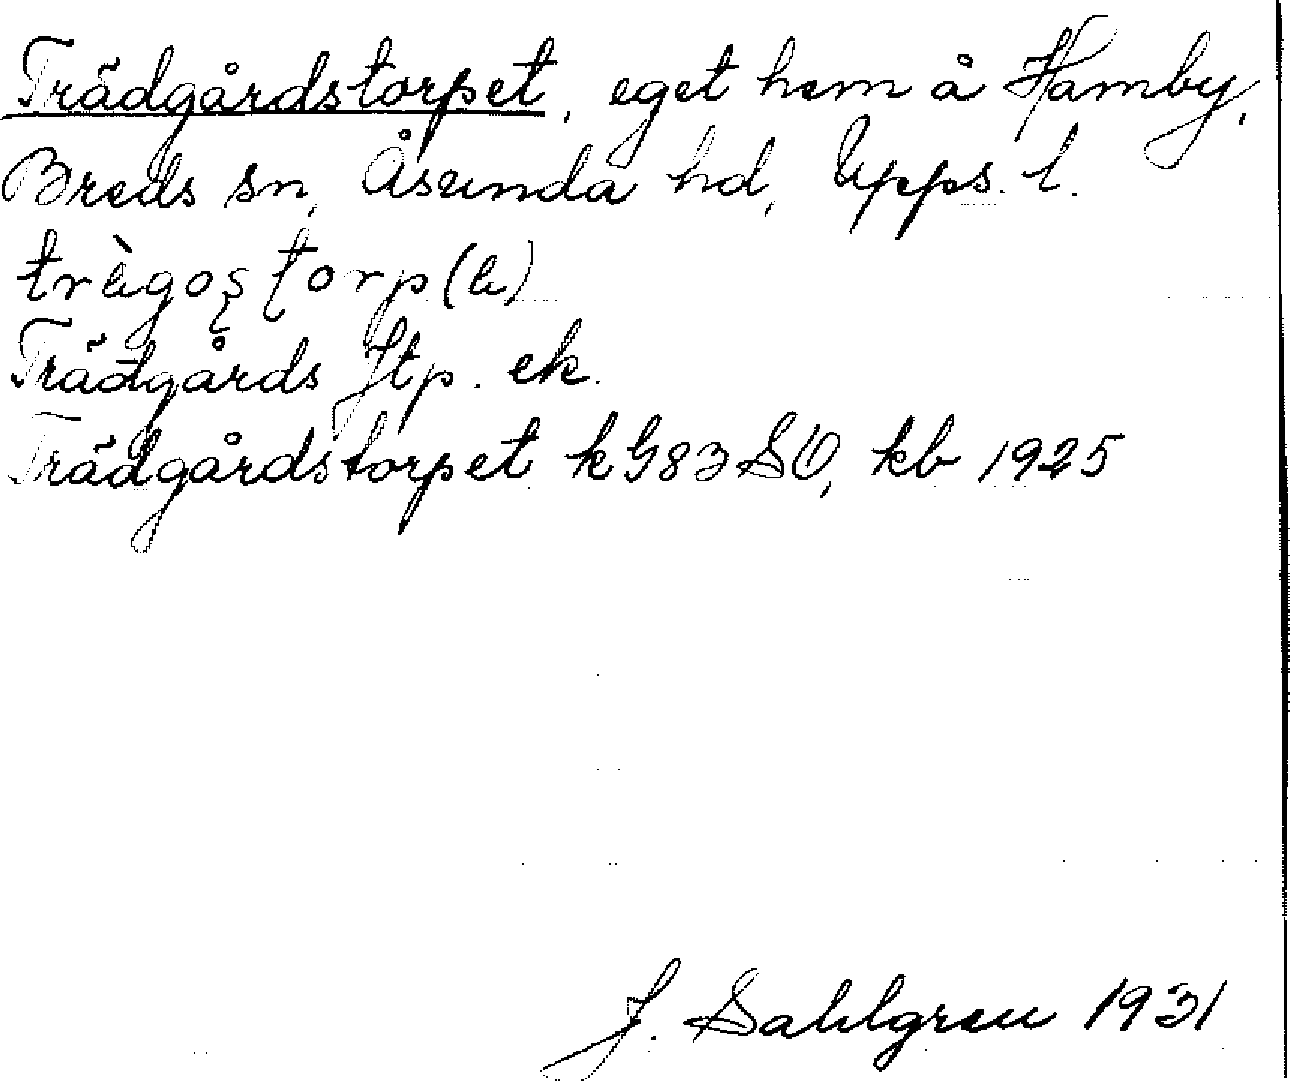 Trädgårdstorpet, eget hem å Hamby,
Breds sn, Åsunda hd, Upps. l.
Trädgårds Jtp. ek.
Trädgårdstorpet k G83 SO, kb 1925
J. Sahlgren 1931